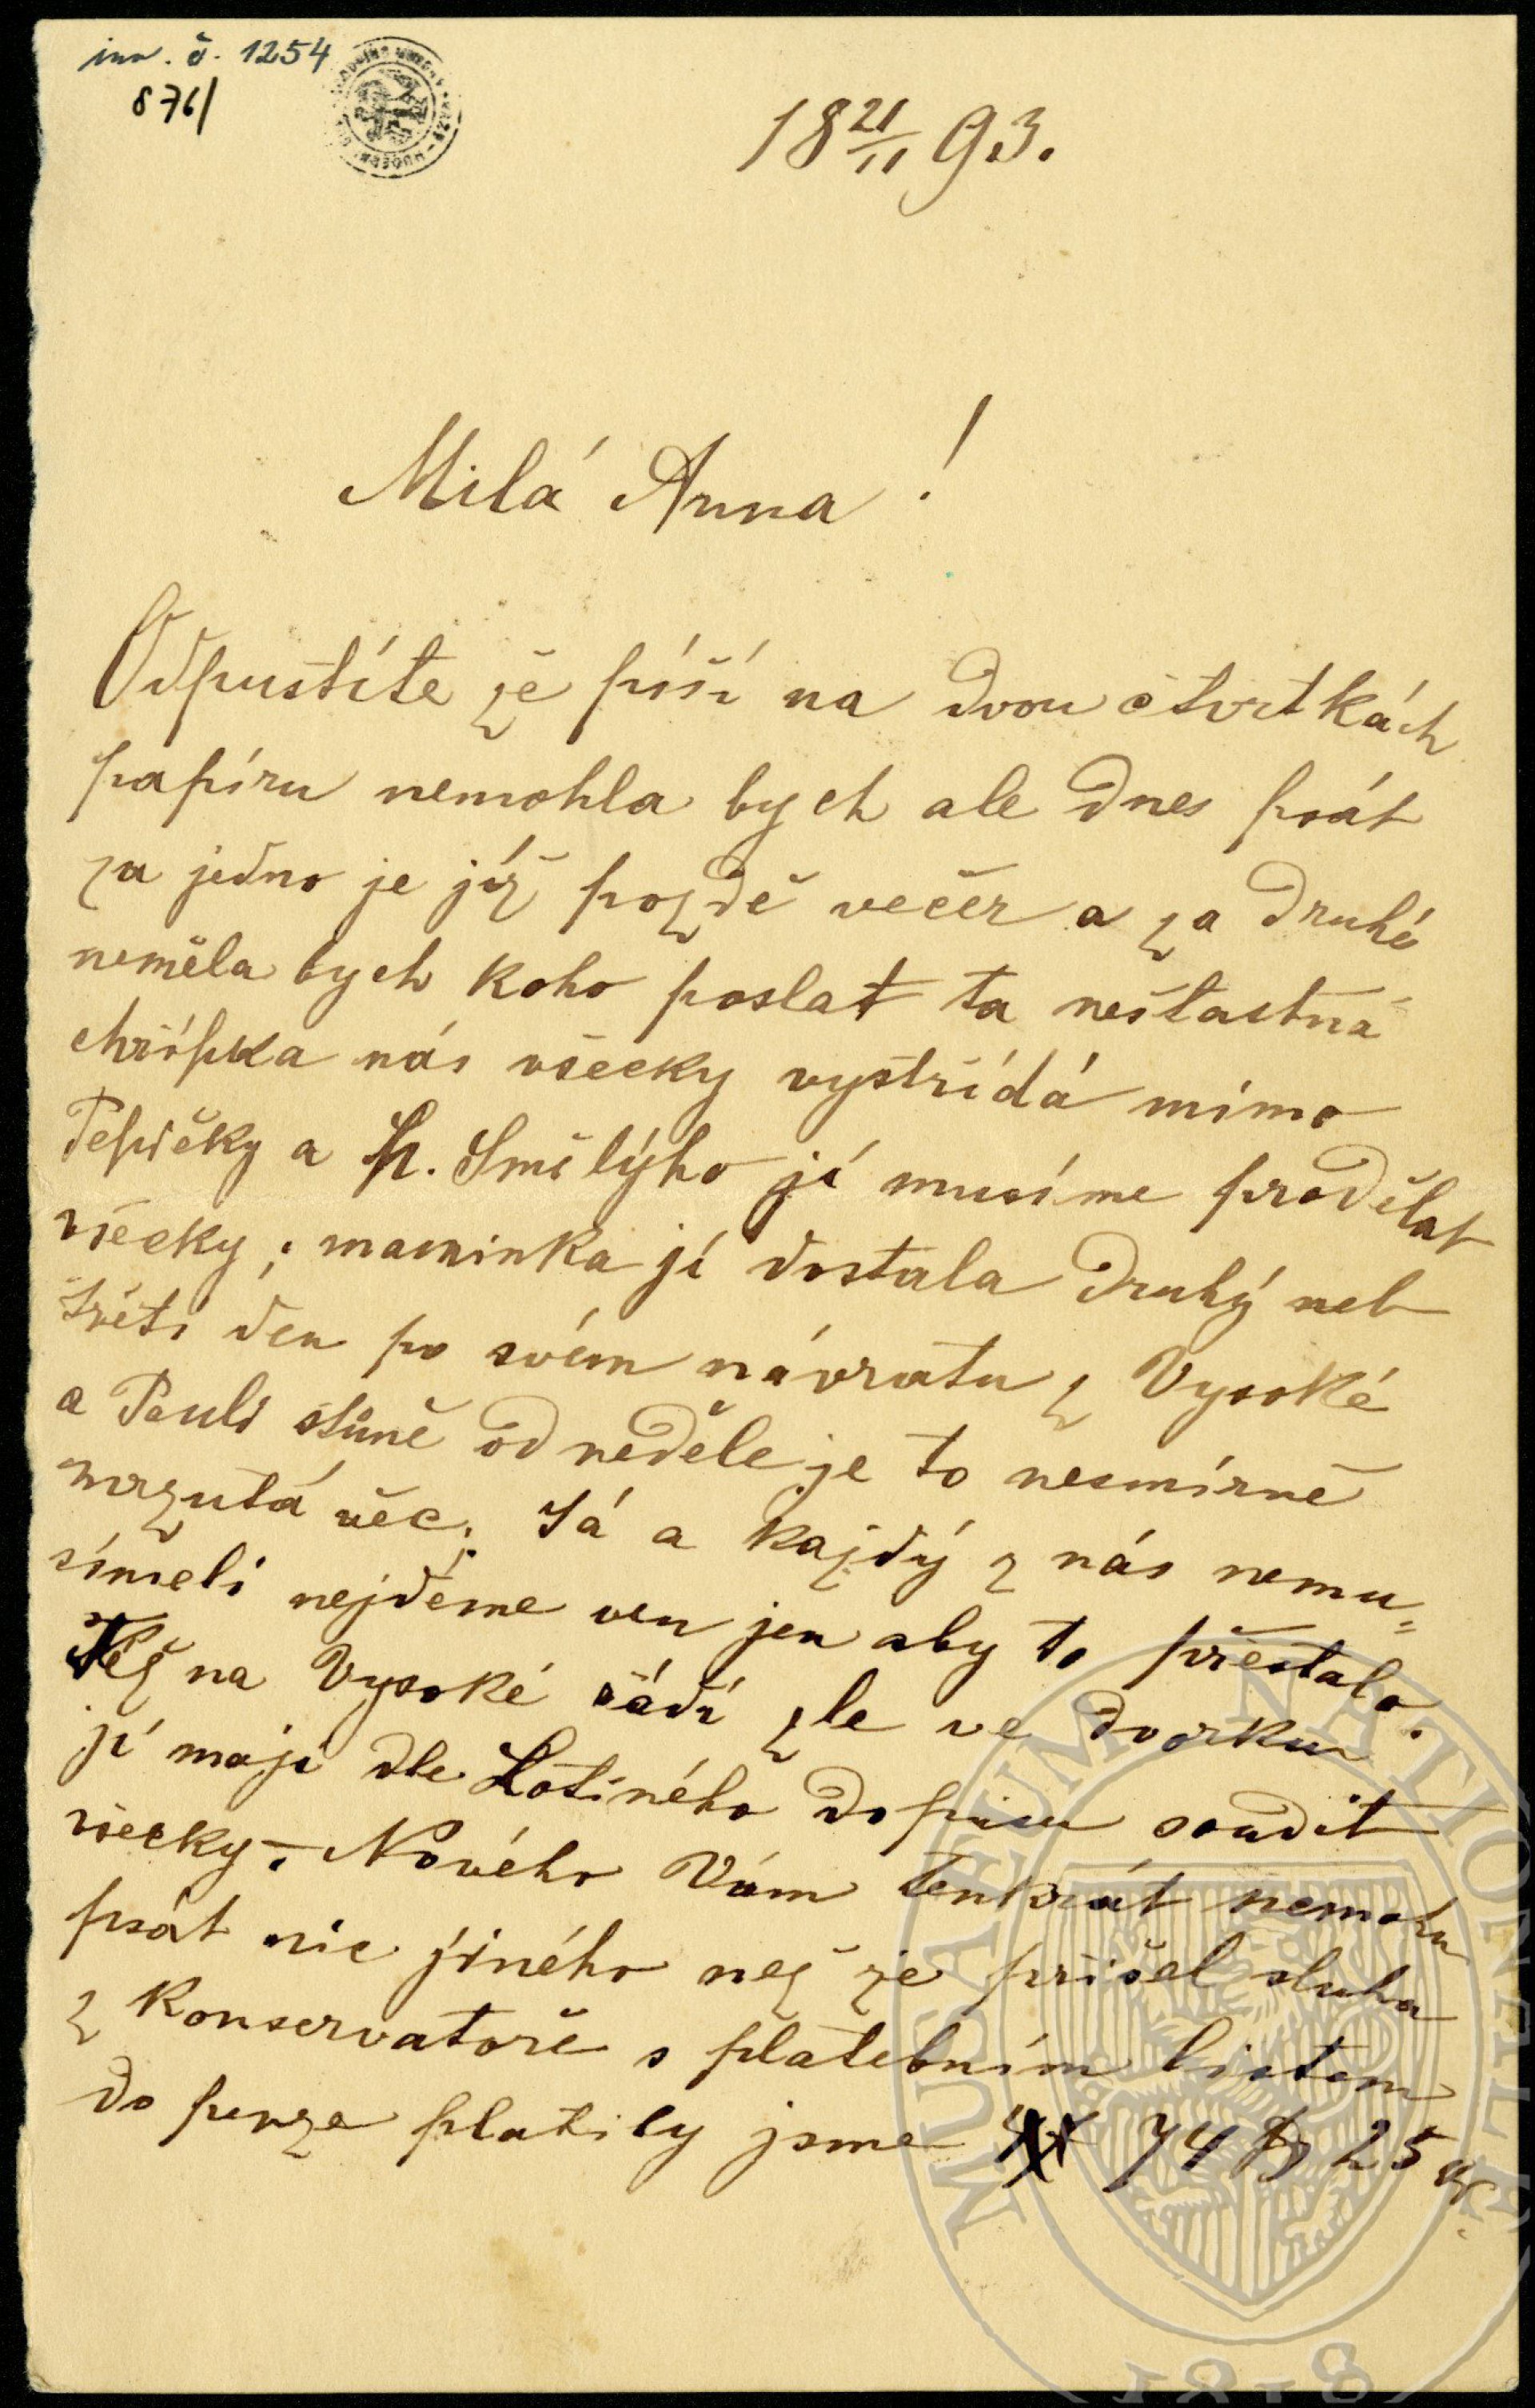 inv. č. 1254
876/
18 21/11 93.
Milá Anna!
Odpustíte že píší na dvou čtvrtkách
papíru nemohla bych ale dnes psát
za jedno je jíž pozdě večer a za druhé
neměla bych koho poslat ta nešťastná
chřípka nás všecky vystřídá mimo
Pepičky a p. Smělýho jí musíme prodělat
všecky; maminka jí dostala druhý neb
třetí den po svém návratu z Vysoké
a Pauli stůně od neděle je to nesmírně
mrzutá věc. Já a každý z nás nemu=
símeli nejdeme ven jen aby to přestalo.
Též na Vysoké řádí zle ve dvorku
jí mají dle Lotiného dopisu soudit
všecky. – Nového Vám tenkrát nemohu
psát nic jiného než že přišel sluha
z Konservatoře s platebním listem
do penze platily jsme 74 25
MUSAEUM NATIONALE
1818